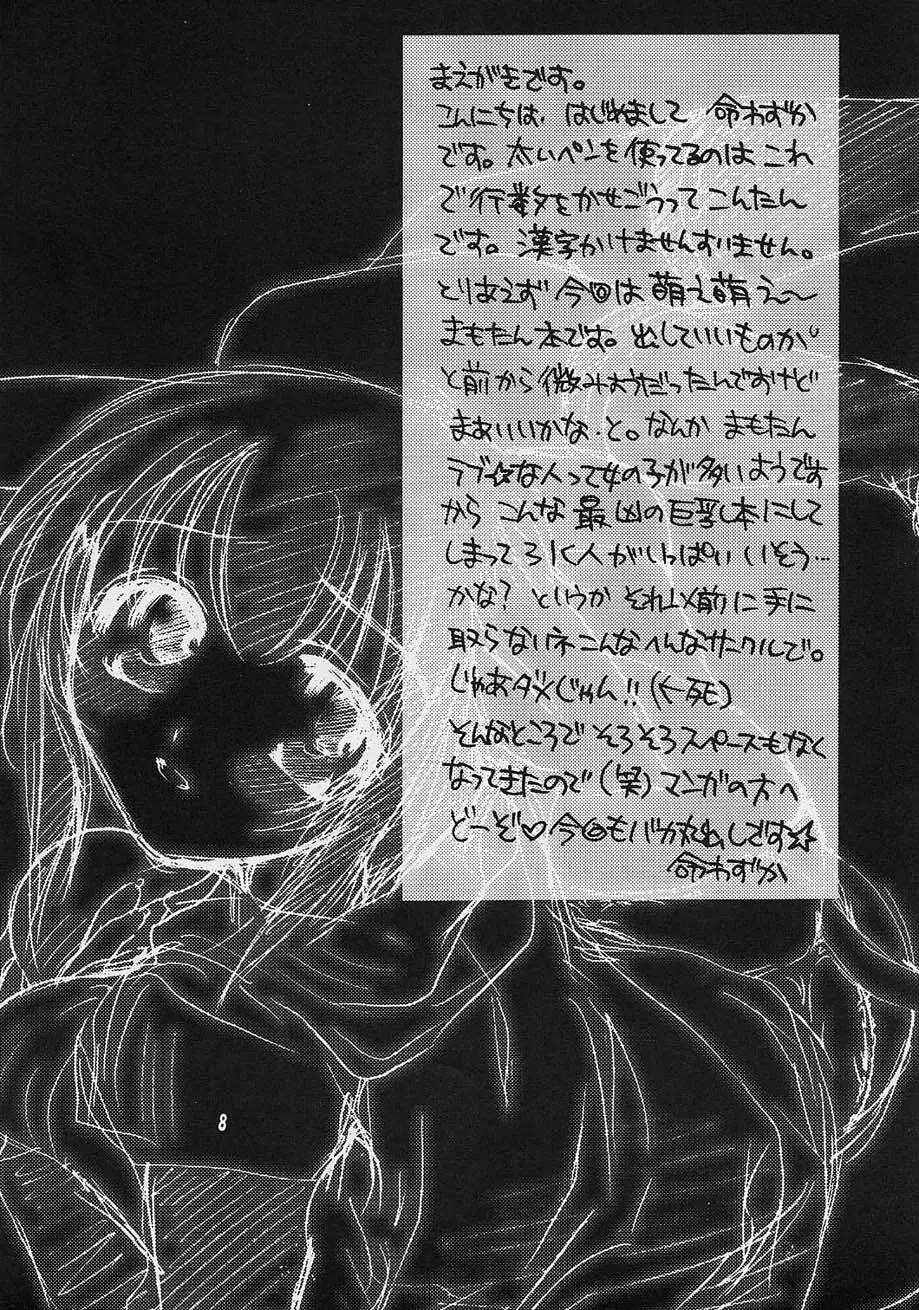 まえがきです。
こんにちは、はじめまして 命わずか
です。太いペンを使ってるのは これ
で行数をかせごうって こんたん
です。漢字かけませんすいません。
とりあえず 今回は 萌え萌え〜
まもたん本です。出していいものか
と前から微みょうだったんですけど
まぁいいかな、と。なんか まもたん
ラブ☆な人って女の子が多いようです
から こんな 最凶の巨乳本にして
しまって ろく人がいっぱい いそう…
かな? というか それ以前に 手に
取らないネ こんな へんなサークルで。
じゃあダメじゃん!!(←死)
そんなところで そろそろスペースもなく
なってきたので (笑) マンガの方へ
どーぞ♡ 今回もバカ丸出しです☆
命わずか
8